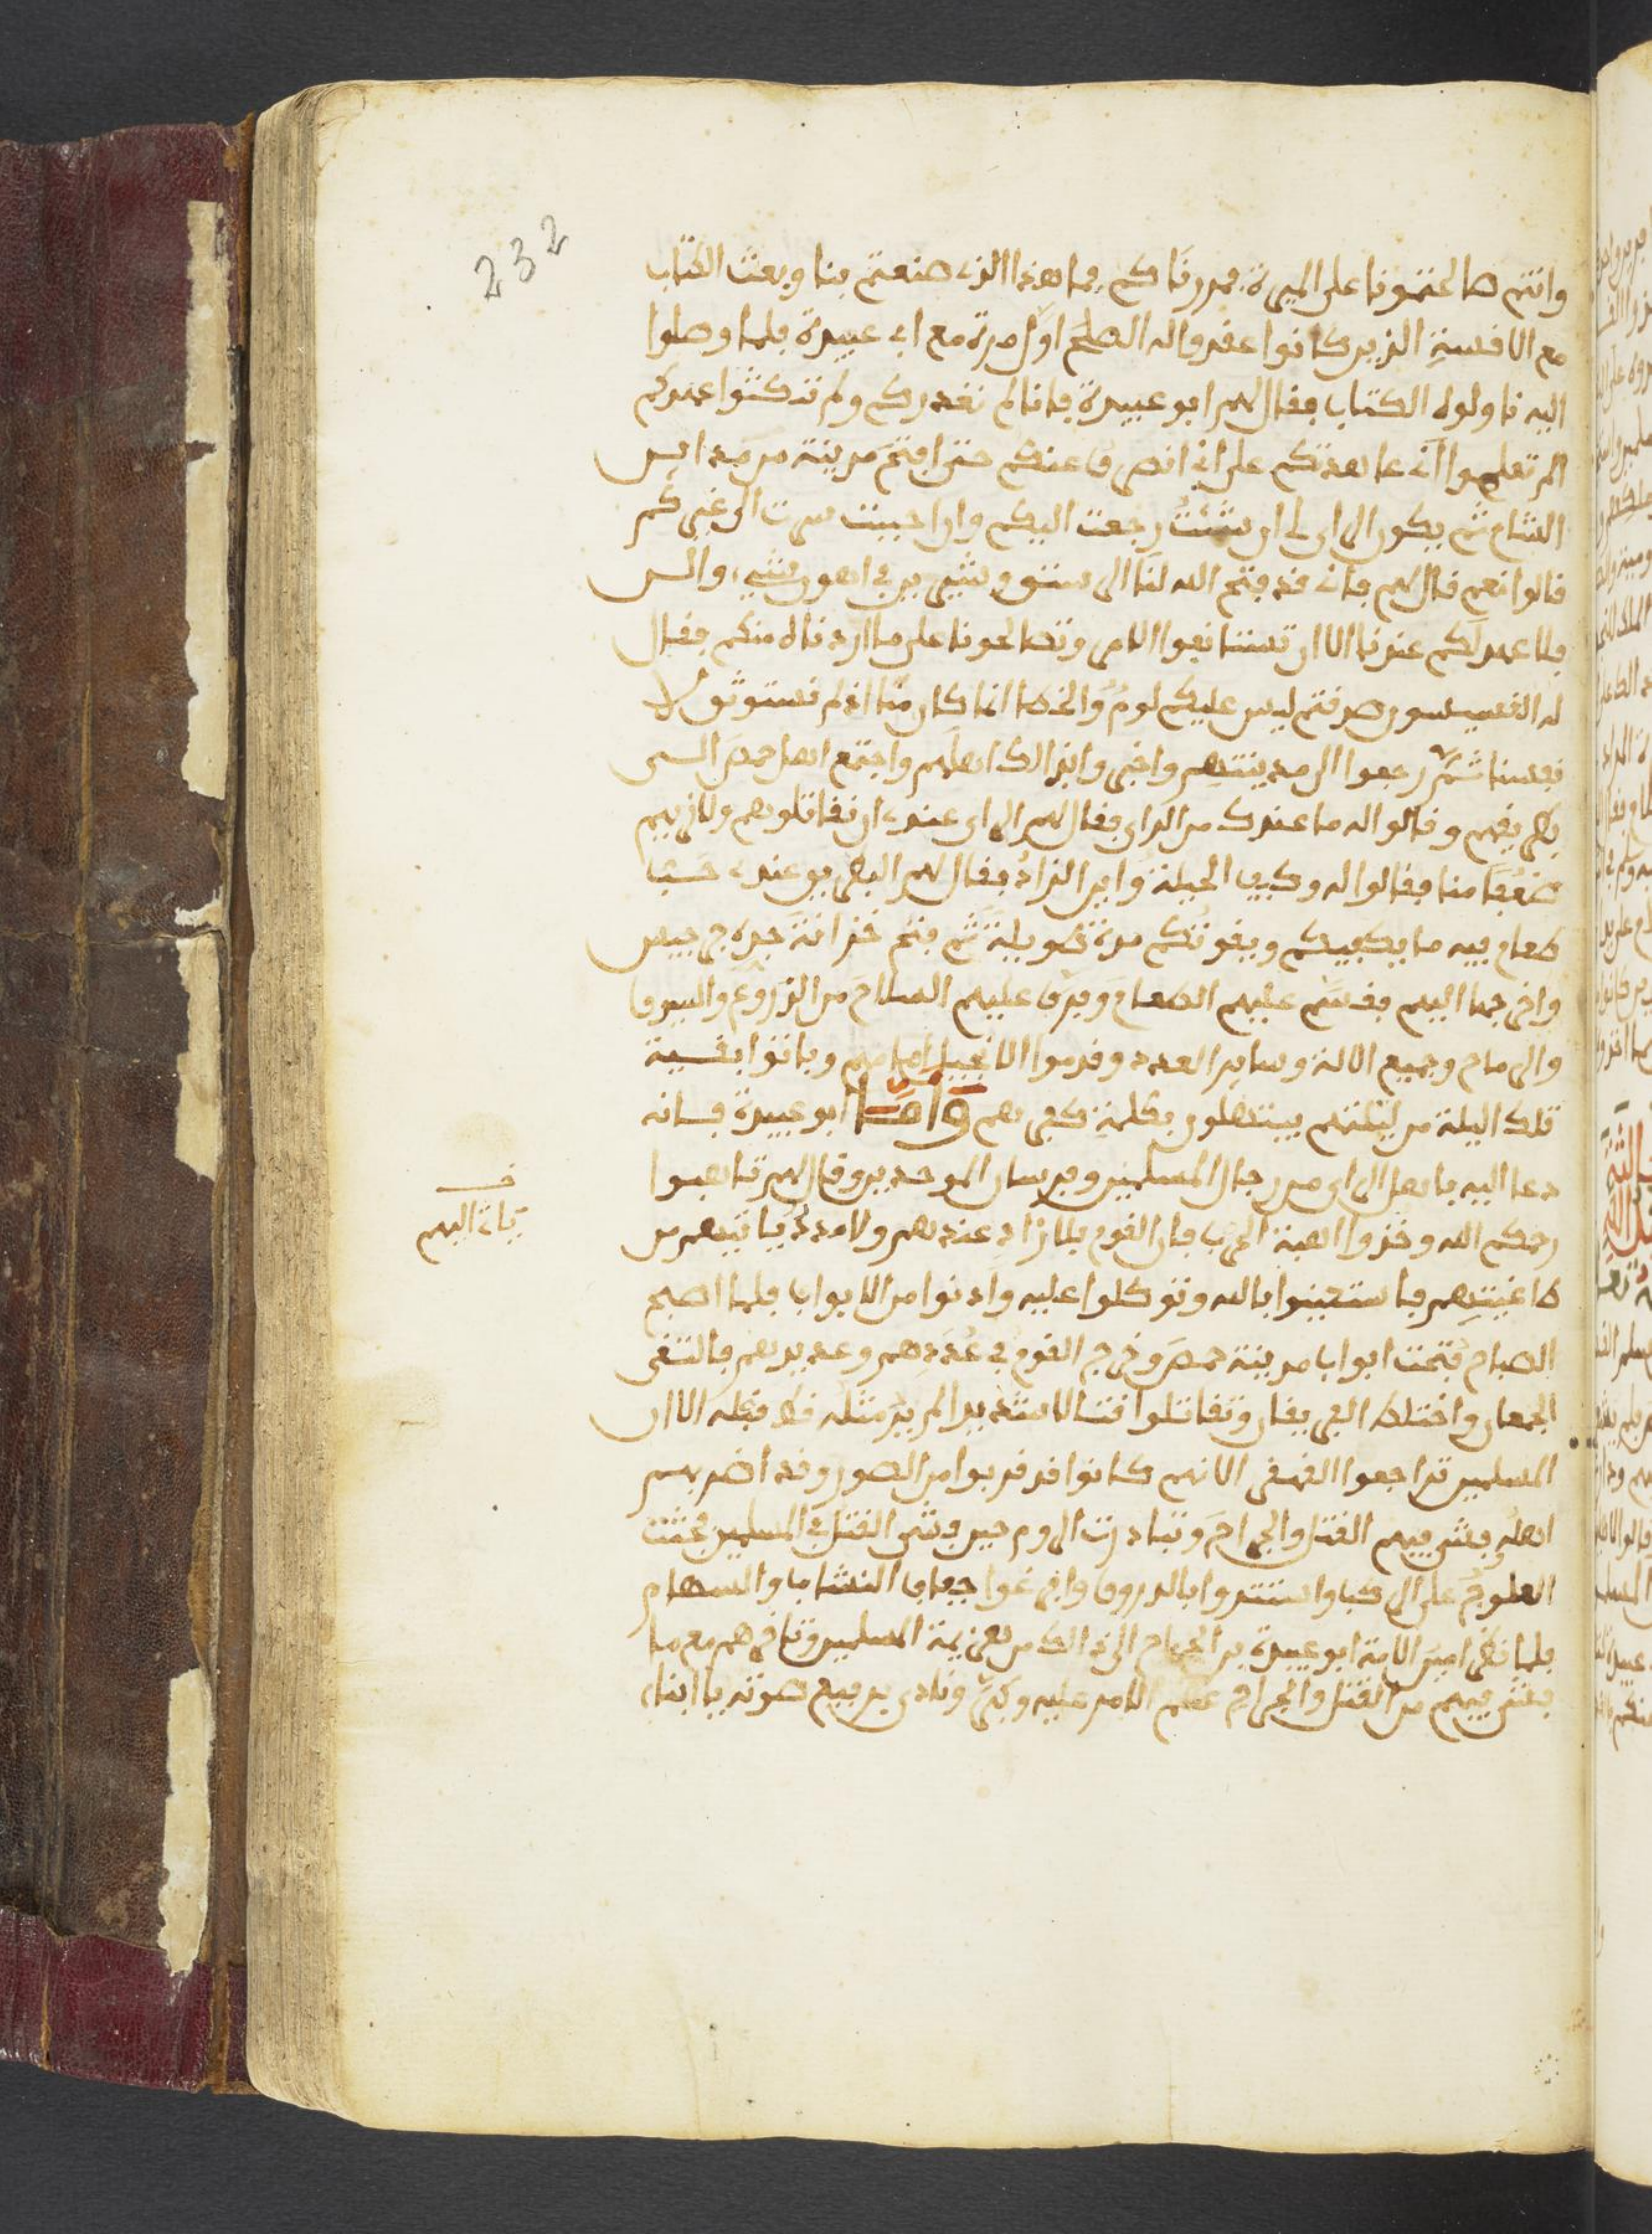 232
وانتم صالحتمونا على الميرة فمررناكم فما هذا الذي صنعتم بنا وبعث الكتاب
مع الاقسة الذين كانوا عقدوا له الصلح اول مرة مع ابي عبيدة فلما وصلوا
اليه ناولوه الكتاب فقال لهم ابو عبيدة فانا لم نغدركم ولم ننكثوا عهدكم
الم تعلموا اني عاهدتكم على اني انصرف عنكم حتى افتح مدينة من مداين
الشام ثم يكون الراي لي ان شئت رجعت اليكم وان احببت سرت الى غيركم
قالوا نعم قال لهم فان قد فتح الله لنا الرستن وشيزر في اهون شيء والس
فلا عهد لكم عندنا الا ان تستانفوا الامر وتصالحونا على ما اردناه منكم فقال
له القسيسون صدقتم ليس عليكم لوم والخطا انما كان منا اذ لم نستوثق لا
نفسنا ثم رجعوا الى مدينتهم واخبروا بذالك اهلهم واجتمع اهل حمص الى
بطريقهم وقالوا له ما عندك من الراي فقال لهم الراي عندي ان تقاتلوهم ولا نريهم
ضعفا منا فقالوا له وكيف الحيلة واين الزاد فقال لهم البطريق عندي خشبا
طعام فيه ما يكفيكم ويقوتكم مدة طويلة ثم فتح خزانة جده جرجيس
واخرجها اليهم فقسم عليهم الطعام وفرق عليهم السلاح من الزروع والسيوف
والرماح وجميع الالة وساير العدد وقدموا الانجيل امامهم وباتوا بقية
تلك اليلة من ليلتهم يبتهلون بكلمة كفرهم واما ابو عبيدة فانه
دعا اليه باهل الراي من رجال المسلمين وفرسان الموحدين وقال لهم تاهبوا
رحمكم الله وخذوا اهبة الحرب فان القوم فلا زاد عندهم ولا مدد ياتيهم من
خـ
يات اليهم
طاغيتهم فاستعينوا بالله وتوكلوا عليه وادنوا من الابواب فلما اصبح
الصباح فتحت ابواب مدينة حمص وخرج القوم في عددهم وعديدهم فالتقى
الجمعان واختلط الفريقان وتقاتلوا قتالا شديدا لم ير مثله قط قبله الا ان
المسلمين تراجعوا القهقرى الا انهم كانوا قد قربوا من الصور وقد اضر بهم
اهله بفشى فيهم القتل والجراح وتبادرت الروم حين فشى القتل في المسلمين فجثت
العلوج على الركب واستتروا بالدروق وافرغوا جعاب النشاب والسهام
فلما نظر امير الامة ابو عبيدة بن الجراح الى ذالك من هزيمة المسلمين وتاخرهم مع ما
فشى فيهم من القتل والجراح عظم الامر عليه وكبر ونادى برفيع صوته يا ابناء